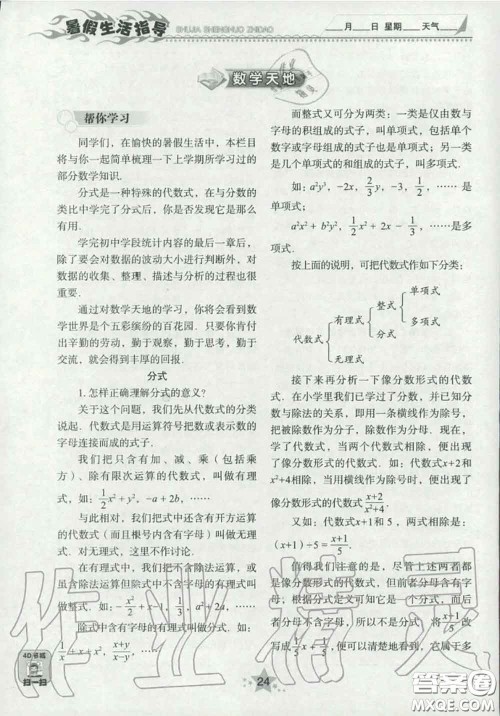 暑假生活指导
SHUJIA SHENGHUO ZHIDAO
____月____日 星期____天气____
数学天地
帮你学习
同学们，在愉快的暑假生活中，本栏目
将与你一起简单梳理一下上学期所学习过的
部分数学知识.
分式是一种特殊的代数式，在与分数的
类比中学完了分式后，你是否发现它是那么
有用.
学完初中学段统计内容的最后一章后，
除了要会对数据的波动大小进行判断外，对
数据的收集、整理、描述与分析的过程也很
重要.
通过对数学天地的学习，你将会看到
数学世界是个五彩缤纷的百花园. 只要你肯付
出辛勤的劳动，勤于观察，勤于思考，勤于
交流，就会得到丰厚的回报.
分式
1. 怎样正确理解分式的意义?
关于这个问题，我们先从代数式的分类
说起. 代数式是用运算符号把数或表示数的
字母连接而成的式子.
我们把只含有加、减、乘（包括乘
方）、除有限次运算的代数式，叫做有理
式，如：1/2x²+y²，-a+2b，……
与此相对，我们把式中还含有开方运算
的代数式（而且根号内含有字母）叫做无理
式. 对无理式，这里不作讨论.
在有理式中，我们把不含除法运算或虽
含除法运算但除式中不含字母的有理式叫
做整式. 如：-x²/2+x-1，1/3，a²+2a，……
除式中含有字母的有理式叫做分式. 如：
1/x，1/x+x，(x+y)/(x-y)，……
而整式又可分为两类：一类是仅由数与
字母的积组成的式子，叫单项式，包括单个
数字或字母组成的式子也是单项式；另一类
是几个单项式的和组成的式子，叫多项式.
如：a²y³，-2x，2/3y，-3，1/2，…… 是
单项式；
a²x²+b²y²，1/2x²+2x-1/3，……是多
项式.
按上面的说明，可把代数式作如下分类：
单项式
整式
有理式
多项式
代数式
分式
无理式
接下来再分析一下像分数形式的代数
式. 在小学里我们已学过了分数，并已知分
数与除法的关系，即用一条横线作为除号，
把被除数作为分子，除数作为分母. 现在，
学了代数式，当两个代数式相除，便出现
了像分数形式的代数式. 如：代数式x+2和
x²+4相除，我们把横线作为除号，便出现了
像分数形式的代数式(x+2)/(x²+4).
又如：代数式x+1和5，两式相除是：
(x+1)÷5=(x+1)/5.
值得我们注意的是，尽管上述两者都
是像分数形式的代数式，但前者分母含有字
母，根据分式的意义可知它是一个分式，而后
者分母不含字母，所以不是分式. 将(x+1)/5改
写成1/5x+1/5，便可以清楚地看到，它属于多
4D书城
扫一扫
24
作业精灵
答案圈
MXQE.COM